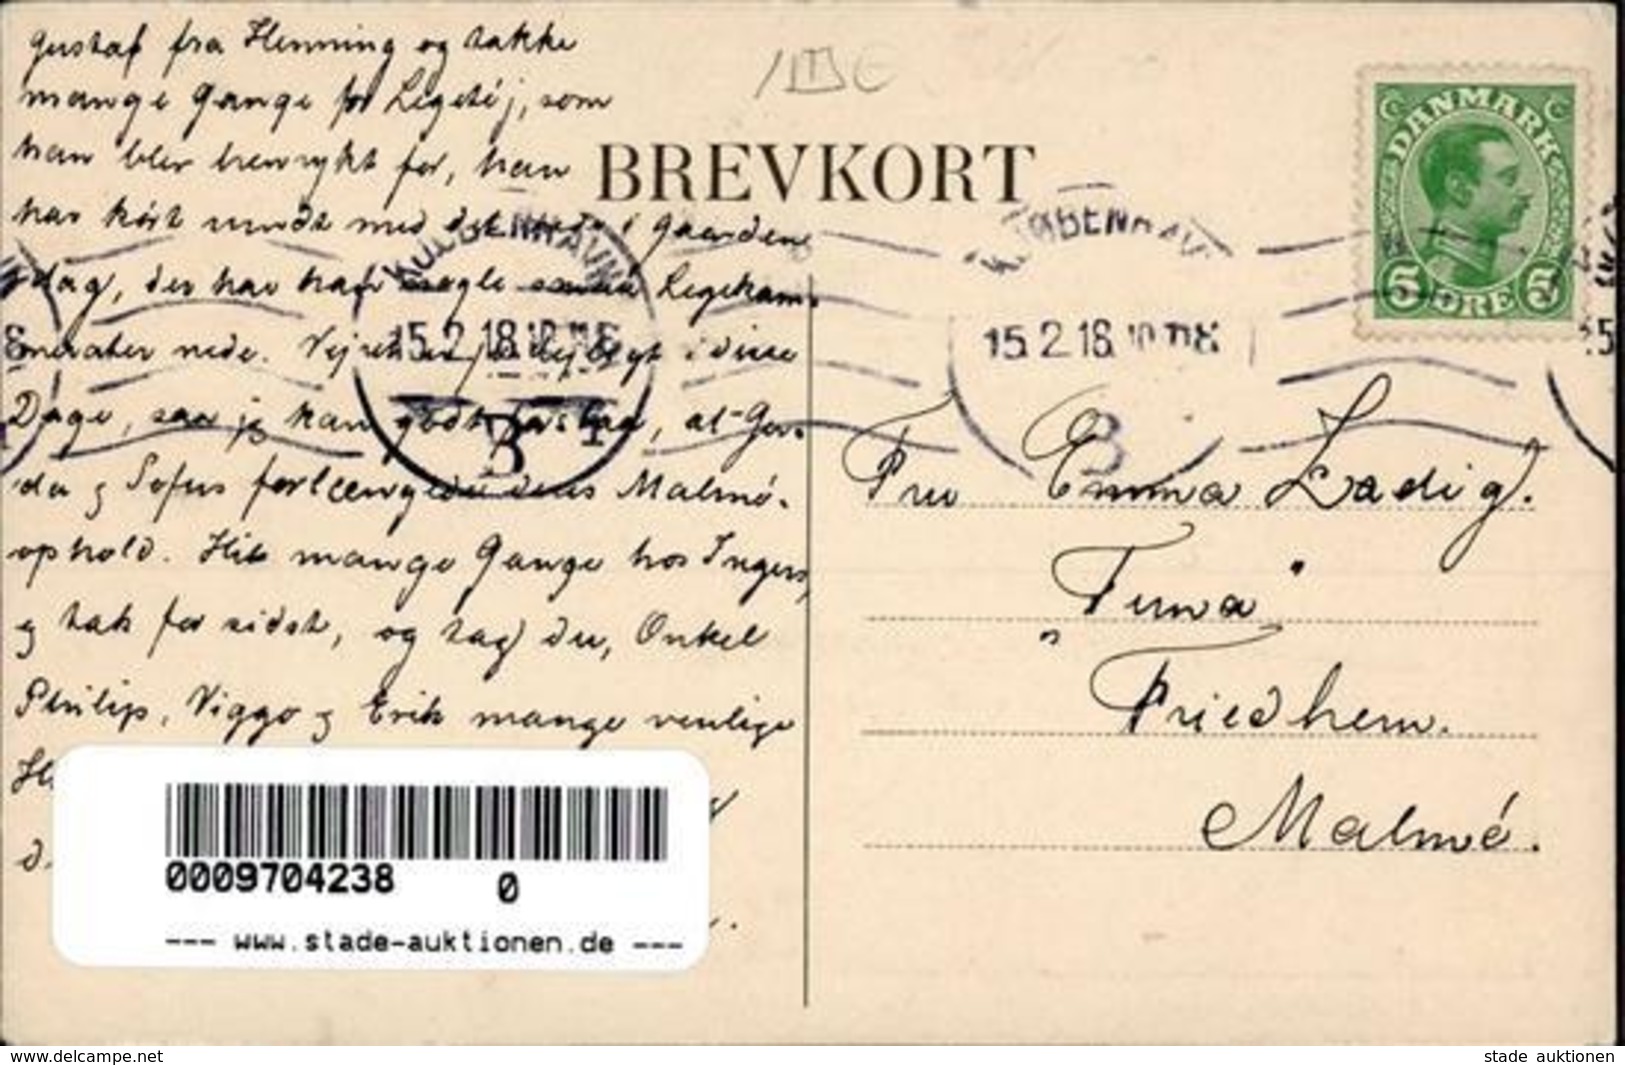 Gustaf fra Henning og takke
mange Gange for Legetøj, som
han blev henrykt for, han
har kørt rundt med det nede i Gaarden
idag, der har han nogle smaa Legekam-
merater nede. Vejret er jo dejligt i disse
Dage, saa jeg kan godt forstaa, at Ger-
da og Sofus forlænger deres Malmö-
ophold. Hils mange Gange hos Ingers,
og tak for sidst, og tag du, Onkel
Philip, Viggo og Erik mange venlige
BREVKORT
DANMARK
5 ØRE 5
KJØBENHAVN
15.2.18.
B
KJØBENHAVN
15.2.18
B
Fru Emma Ladig.
"Tuna"
Friedhem.
Malmö.
0009704238
0
--- www.stade-auktionen.de ---
www.delcampe.net
stade auktionen